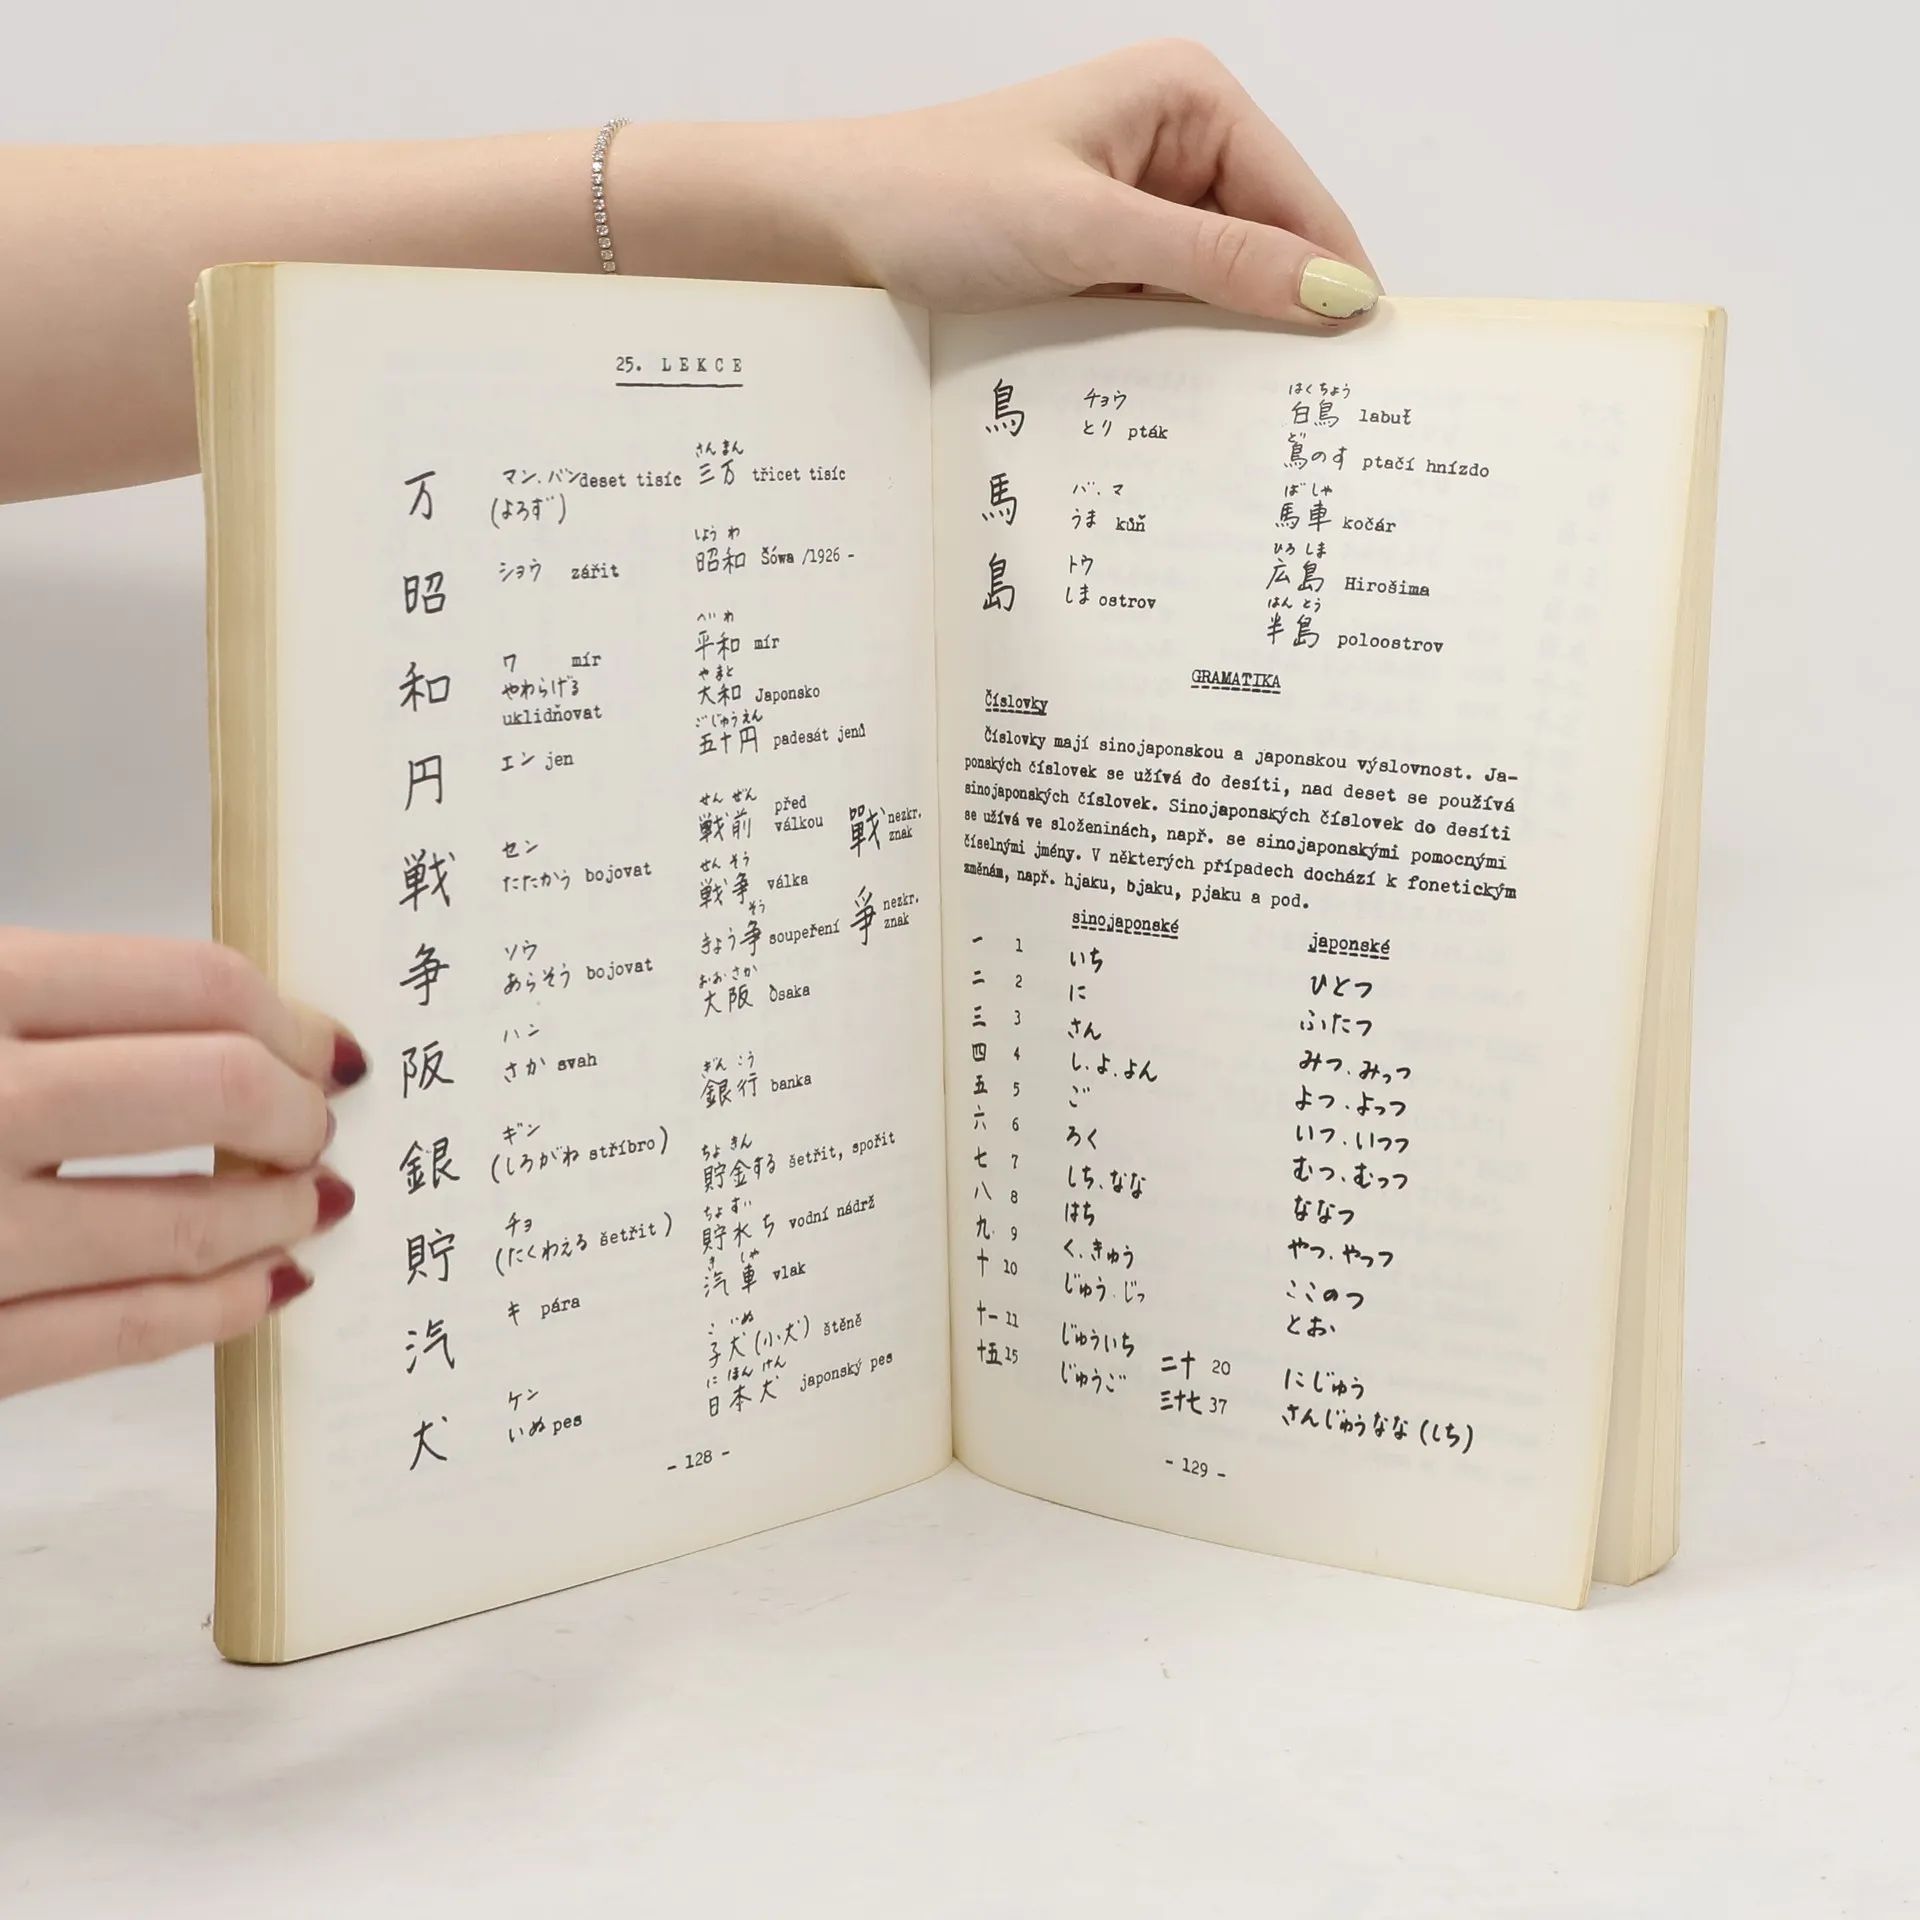 25. LEKCE
さんまん
万 マン、バン deset tisíc 三万 třicet tisíc
(よろず)
しょう わ
昭 ショウ zářit 昭和 Šówa /1926 -
へい わ
平和 mír
和 ワ mír
やまと
やわらげる 大和 Japonsko
uklidňovat
ごじゅうえん
円 エン jen 五十円 padesát jenů
せん ぜん
戦前 před válkou 戰 nezkr. znak
戦 セン
せん そう
たたかう bojovat 戦争 válka
そう
争 ソウ きょう争 soupeření 爭 nezkr. znak
あらそう bojovat
おおさか
大阪 Ósaka
阪 ハン
さか svah
ぎん こう
銀行 banka
銀 ギン
(しろがね stříbro)
ちょ きん
貯金する šetřit, spořit
貯 チョ
ちょ すい
(たくわえる šetřit) 貯水ち vodní nádrž
き しゃ
汽 キ pára 汽車 vlak
こ いぬ
子犬(小犬) štěně
に ほん けん
犬 ケン 日本犬 japonský pes
いぬ pes
- 128 -
はくちょう
鳥 チョウ 白鳥 labuť
とり pták
鳥のす ptačí hnízdo
ば しゃ
馬 バ、マ 馬車 kočár
うま kůň
ひろ しま
島 トウ 広島 Hirošima
しま ostrov
はん とう
半島 poloostrov
GRAMATIKA
Číslovky
Číslovky mají sinojaponskou a japonskou výslovnost. Ja-
ponských číslovek se užívá do desíti, nad deset se používá
sinojaponských číslovek. Sinojaponských číslovek do desíti
se užívá ve složeninách, např. se sinojaponskými pomocnými
číselnými jmény. V některých případech dochází k fonetickým
změnám, např. hjaku, bjaku, pjaku a pod.
sinojaponské japonské
一 1 いち ひとつ
二 2 に ふたつ
三 3 さん みつ、みっつ
四 4 し、よ、よん よつ、よっつ
五 5 ご いつ、いつつ
六 6 ろく むつ、むっつ
七 7 しち、なな ななつ
八 8 はち やつ、やっつ
九 9 く、きゅう ここのつ
十 10 じゅう、じっ とお
十一 11 じゅういち 二十 20 にじゅう
十五 15 じゅうご 三十七 37 さんじゅうなな(しち)
- 129 -